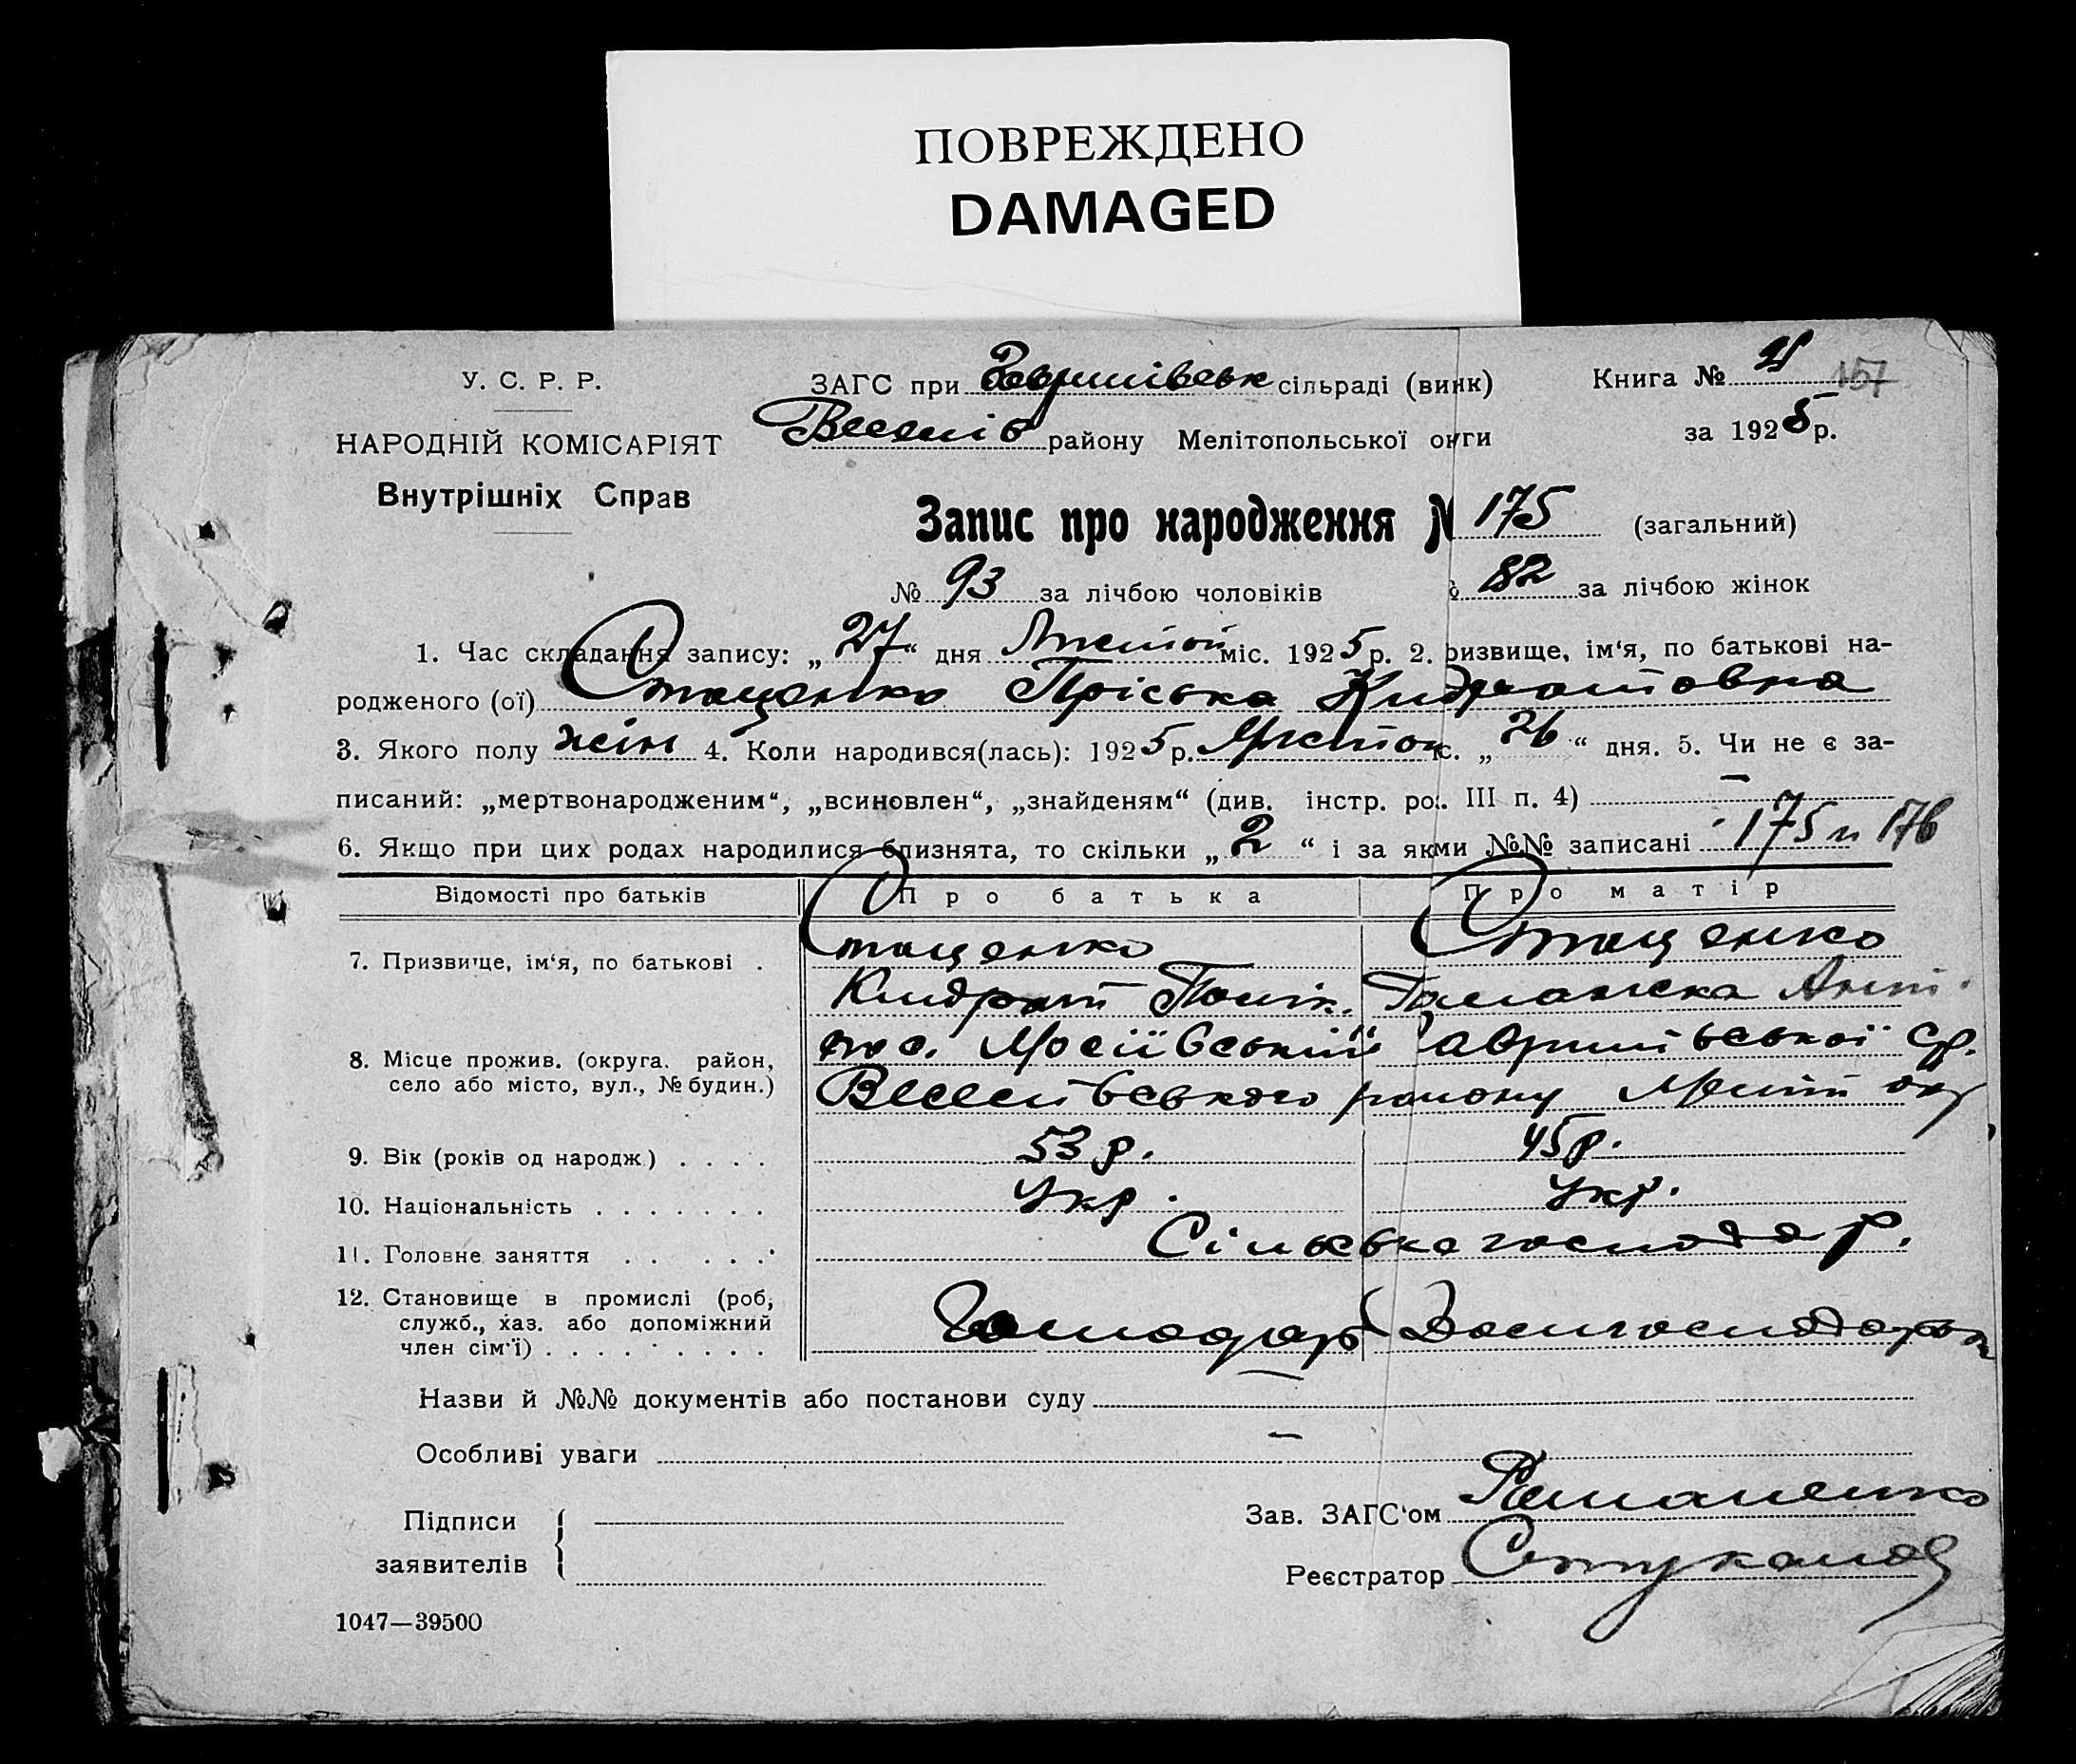 ПОВРЕЖДЕНО
DAMAGED
У. С. Р. Р.
НАРОДНІЙ КОМІСАРІЯТ
Внутрішніх Справ
ЗАГС при сільраді (вик)
району Мелітопольської окги
Книга №
157
за 1925 р.
Запис про народження № 175 (загальний)
№ 93 за лічбою чоловіків № 82 за лічбою жінок
1. Час складання запису: „27“ дня міс. 1925 р. 2. ризвище, ім‘я, по батькові на-
родженого (ої) Стаценко Пріська Кидратовна
3. Якого полу жін 4. Коли народився(лась): 1925 р. с. „26“ дня. 5. Чи не є за-
писаний: „мертвонародженим“, „всиновлен“, „знайденям“ (див. інстр. роз. III п. 4) —
6. Якщо при цих родах народилися близнята, то скільки „2“ і за якми №№ записані 175 и 176
Відомості про батьків Про батька Про матір
7. Призвище, ім‘я, по батькові . Стаценко Стаценко
Кидрат
8. Місце прожив. (округа. район,
село або місто, вул., № будин.)
району Меліт окр
9. Вік (років од народж.) . . . . 53 р. 45 р.
10. Національність . . . . . . . Укр. Укр.
11. Головне заняття . . . . . . Сільське господар.
12. Становище в промислі (роб,
служб., хаз. або допоміжний
член сім‘ї) . . . . . . . . . Господарь
Назви й №№ документів або постанови суду
Особливі уваги —
Підписи
заявителів
Зав. ЗАГС‘ом
Реєстратор
1047—39500